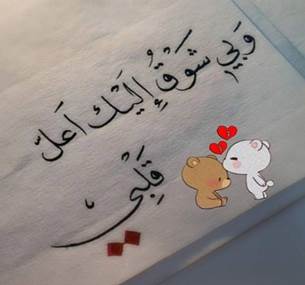 وَبِي شَوْقٌ إِلَيْكَ أَعَلَّ
قَلْبِي